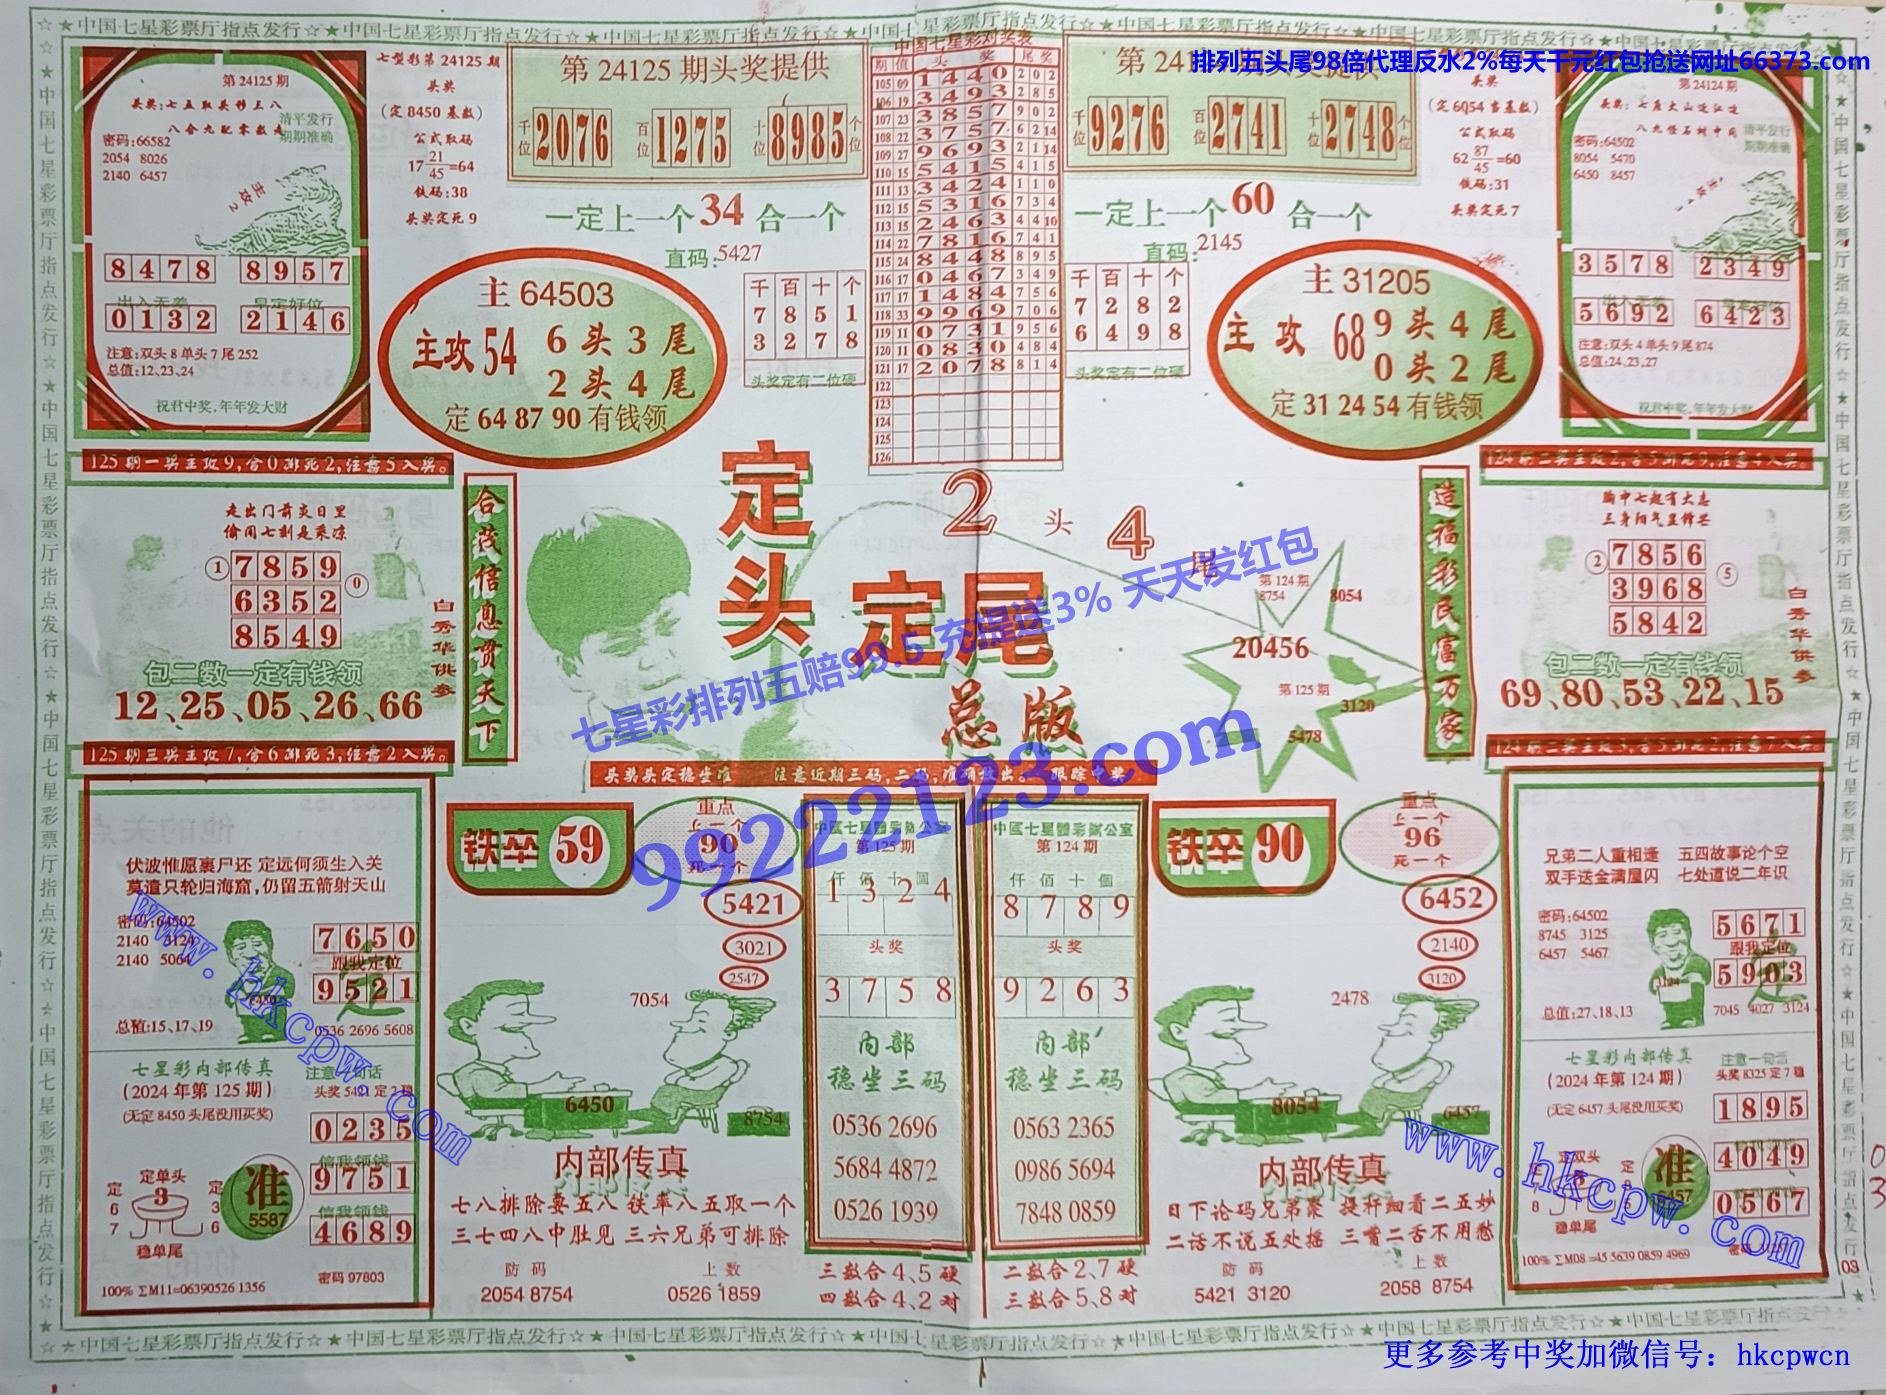 ☆★中国七星彩票厅指点发行☆★中国七星彩票厅指点发行☆★中国七星彩票厅指点发行☆★
排列五头尾98倍代理反水2%每天千元红包抢送网址66373.com
第 24125 期
头奖:七五取头移三八
八合九配零数走
清平发行
期期准确
密码:66582
2054 8026
2140 6457
主攻2
8 4 7 8
8 9 5 7
出入无差
早定好位
0 1 3 2
2 1 4 6
注意:双头 8 单头 7 尾 252
总值:12,23,24
祝君中奖,年年发大财
七型彩第 24125 期
头奖
(定 8450 基数)
公式取码
17 21/45 =64
铁码:38
头奖定死 9
第 24125 期头奖提供
千位 2076
百位 1275
十位 8985 个位
一定上一个 34 合一个
直码:5427
主 64503
主攻 54
6 头 3 尾
2 头 4 尾
定 64 87 90 有钱领
千 百 十 个
7 8 5 1
3 2 7 8
头奖定有二位硬
中国七星彩对奖表
期 值 头 奖 尾 奖
105 09 1 4 4 0 2 0 2
106 19 3 4 9 3 2 8 5
107 23 3 8 5 7 9 0 2
108 22 3 7 5 7 6 2 14
109 27 9 6 9 3 2 1 14
110 15 5 4 1 5 4 1 5
111 13 3 4 2 4 1 1 0
112 15 5 3 1 6 7 3 4
113 15 2 4 6 3 4 4 10
114 22 7 8 1 6 7 4 1
115 24 8 4 4 8 8 9 5
116 17 0 4 6 7 3 4 9
117 17 1 4 8 4 7 5 6
118 33 9 9 6 9 7 0 6
119 11 0 7 3 1 9 5 6
120 11 0 8 3 0 4 8 4
121 17 2 0 7 8 8 1 4
122
123
124
125
126
9276
2741
2748
一定上一个 60 合一个
直码:2145
千 百 十 个
7 2 8 2
6 4 9 8
头奖定有二位硬
主 31205
主攻 68
9 头 4 尾
0 头 2 尾
定 31 24 54 有钱领
头奖
(定 6Q54 当基数)
公式取码
62 87/45 =60
铁码:31
头奖定死 7
第 24124 期
清平发行
期期准确
密码:64502
8054 5470
6450 8457
3 5 7 8
2 3 4 9
5 6 9 2
6 4 2 3
注意:双头 4 单头 9 尾 874
总值:24,23,27
祝君中奖,年年发大财
125 期一奖主攻 9,含 0 排死 2,注意 5 入奖。
走出门前炎日里
偷闲七刻是乘凉
① 7 8 5 9 ⓪
6 3 5 2
8 5 4 9
包二数一定有钱领
白秀华供参
12、25、05、26、66
125 期三奖主攻 7,含 6 排死 3,注意 2 入奖。
合茂信息贯天下
定头定尾
总版
2 头 4 尾
头奖头定稳坐准
第 124 期
8754
8054
20456
第 125 期
3120
5478
造福彩民富万家
胸中七起有大志
三身阳气显锋芒
② 7 8 5 6 ⑤
3 9 6 8
5 8 4 2
包二数一定有钱领
白秀华供参
69、80、53、22、15
七星彩排列五赔99.5 充提送3% 天天发红包
99222123.com
伏波惟愿裹尸还 定远何须生入关
莫遣只轮归海窟,仍留五箭射天山
密码:64502
2140 3124
2140 5064
6450
7 6 5 0
跟我定位
9 5 2 1
总值:15、17、19
0536 2696 5608
七星彩内部传真
(2024 年第 125 期)
(无定 8450 头尾没用买奖)
注意一句话
头奖 5421 定 2 稳
0 2 3 5
信我领钱
9 7 5 1
信我领钱
4 6 8 9
定单头
3
稳单尾
定 6 7
定 3 6
准
5587
100% ΣM11=06390526 1356
密码 97803
铁卒 59
重点
上一个
90
死一个
5421
3021
2547
7054
6450
8754
内部传真
七八排除要五八 铁率八五取一个
三七四八中肚见 三六兄弟可排除
防 码
2054 8754
上 数
0526 1859
第 125 期
仟 佰 十 個
1 3 2 4
头 奖
3 7 5 8
内部
稳坐三码
0536 2696
5684 4872
0526 1939
三数合 4、5 硬
四数合 4、2 对
第 124 期
仟 佰 十 個
8 7 8 9
头 奖
9 2 6 3
内部
稳坐三码
0563 2365
0986 5694
7848 0859
二数合 2、7 硬
三数合 5、8 对
铁卒 90
重点
上一个
96
死一个
6452
2140
3120
2478
8054
6457
内部传真
日下论码兄弟聚 提秤细看二五妙
二话不说五处摇 三嘴二舌不用愁
防 码
5421 3120
上 数
2058 8754
兄弟二人重相逢 五四故事论个空
双手送金满屋闪 七处道说二年识
密码:64502
8745 3125
6457 5467
3124
5 6 7 1
跟我定位
5 9 0 3
总值:27、18、13
7045 4027 3124
七星彩内部传真
(2024 年第 124 期)
(无定 6457 头尾没用买奖)
注意一句话
头奖 8325 定 7 稳
1 8 9 5
4 0 4 9
0 5 6 7
定双头
稳单尾
准
100% ΣM08 =45 5639 0859 4969
03
www.hkcpw.com
www.hkcpw.com
☆★中国七星彩票厅指点发行☆★中国七星彩票厅指点发行☆★中国七星彩票厅指点发行☆★
更多参考中奖加微信号：hkcpwcn